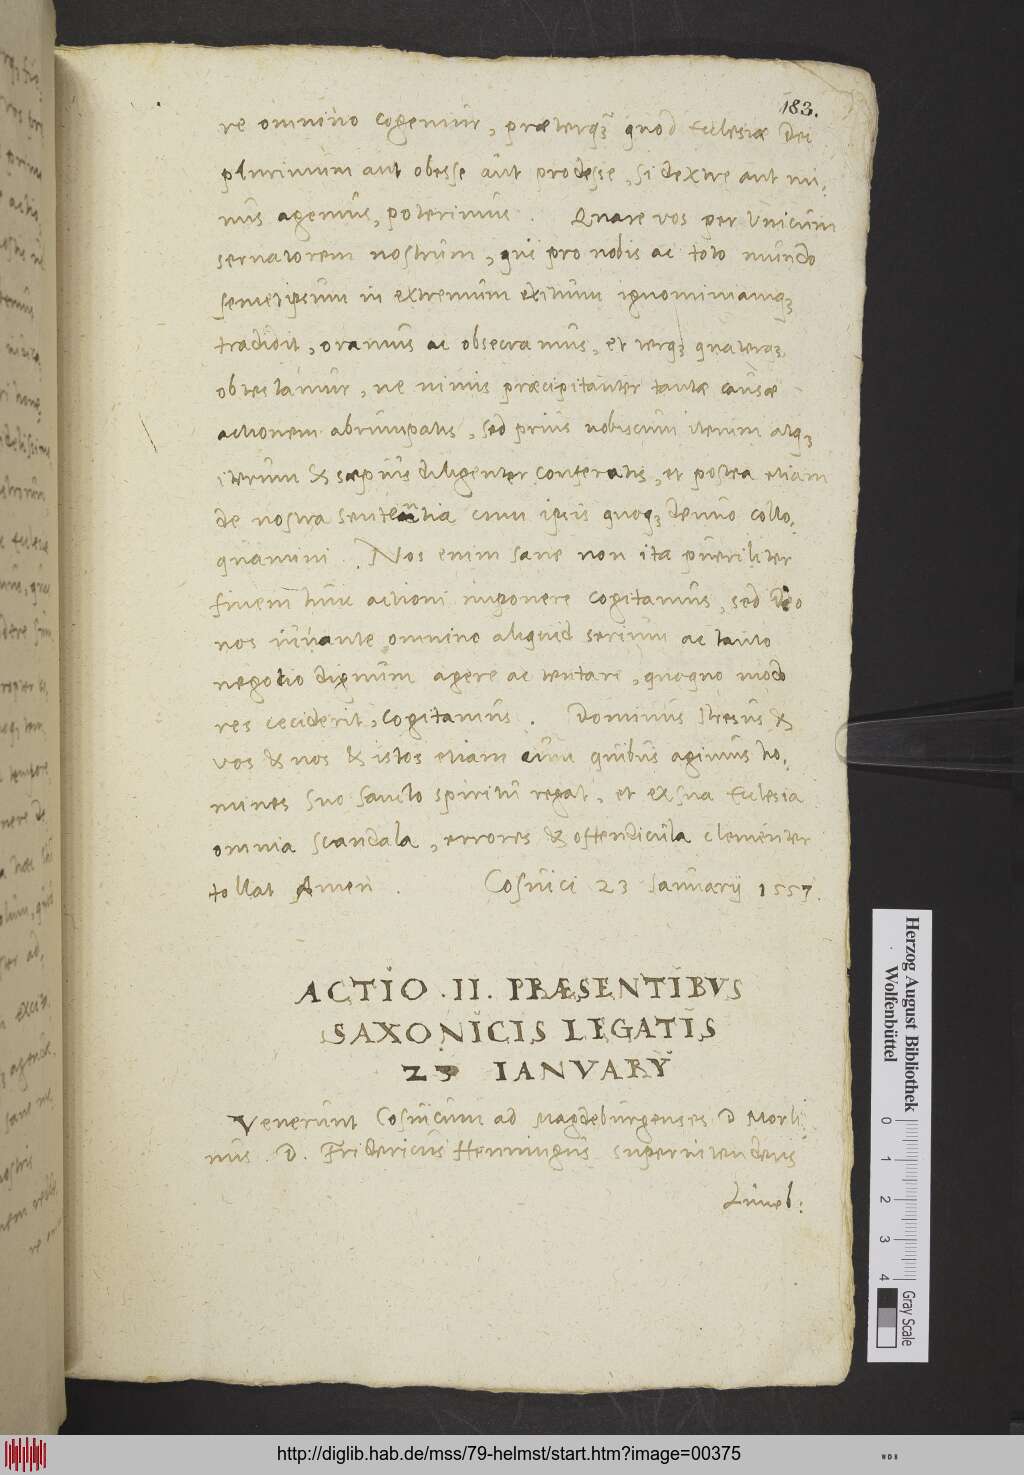 183.
re omnino cogemur, præterq̃ quod Ecclesiæ Dei
plurimum aut obesse aut prodesse, si dextre aut mi-
nus agemus, poterimus. Quare vos per Unicum
servatorem nostrum, qui pro nobis ac toto mundo
semetipsum in extremum exitium ignominiamq;
tradidit, oramus ac obsecramus, et terq; quaterq;
obtestamur, ne nimis præcipitanter tantæ causæ
actionem abrumpatis, sed prius nobiscum iterum atq;
iterum & sæpius diligenter conferatis, et postea etiam
de nostra sententia cum ipsis quoq; denuo collo-
quamini. Nos enim sane non ita pueriliter
finem huic actioni imponere cogitamus, sed Deo
nos iuvante omnino aliquid serium ac tanto
negotio dignum agere ac tentare, quoquo modo
res ceciderit, cogitamus. Dominus Jhesus &
vos & nos & istos etiam cum quibus agimus ho-
mines suo sancto spiritu regat, et ex sua Ecclesia
omnia scandala, errores & offendicula clementer
tollat Amen. Cosuici 23 Januarij 1557.
ACTIO .II. PRÆSENTIBVS
SAXONICIS LEGATIS
23 IANVARY
Venerunt Cosuicum ad Magdeburgenses D Morli-
nus. D. Fridericus Henningus superintendens
Luneb:
Herzog August Bibliothek
Wolfenbüttel
0 1 2 3 4
Gray Scale
http://diglib.hab.de/mss/79-helmst/start.htm?image=00375
WDB